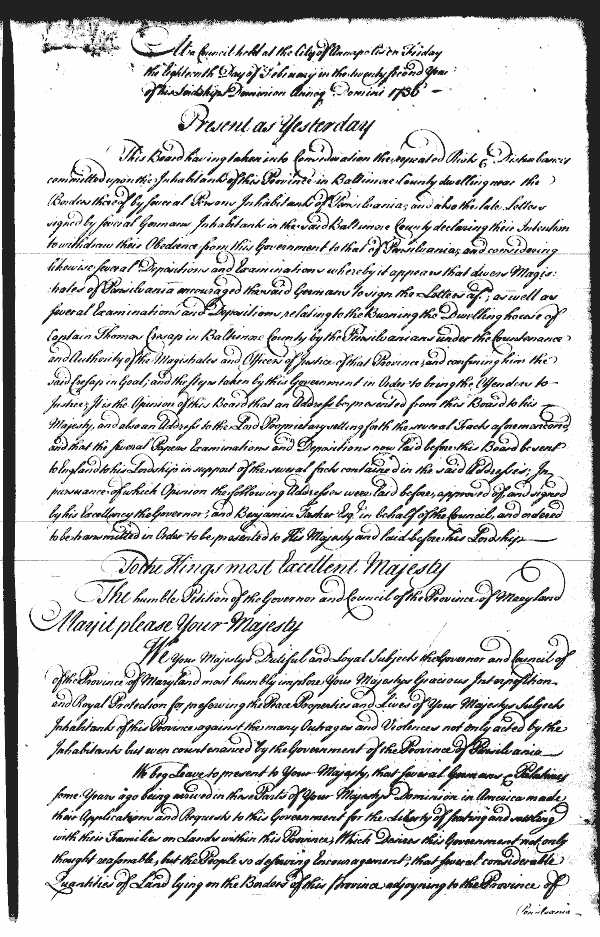 At a Council held at the City of Annapolis on Friday
the Eighteenth Day of February in the twenty second Year
of his Lordships Dominion Annoq Domini 1736 —
Present as Yesterday
This Board having taken into Consideration the repeated Riots & Disturbances
committed upon the Inhabitants of this Province in Baltimore County dwelling near the
Borders thereof by several Persons Inhabitants of Pensilvania; and also the late Letters
signed by several Germans Inhabitants in the said Baltimore County declaring their Intention
to withdraw their Obedience from this Government to that of Pensilvania; and considering
likewise several Depositions and Examinations whereby it appears that divers Magis:
trates of Pensilvania encouraged the said Germans to sign the Letters afd; as well as
several Examinations and Depositions, relating to the Burning the Dwelling house of
Captain Thomas Cresap in Baltimore County by the Pensilvanians under the Countenance
and Authority of the Magistrates and Officers of Justice of that Province; and confining him the
said Cresap in Goal; and the steps taken by this Government in Order to bring the Offenders to
Justice; It is the Opinion of this Board that an Address be presented from this Board to his
Majesty, and also an Address to the Lord Proprietary setting forth the several Facts aforementioned,
and that the several Papers Examinations and Depositions now laid before this Board be sent
to England to his Lordship in support of the several facts contained in the said Addresses; In
pursuance of which Opinion the following Addresses were laid before, approved of, and signed
by his Excellency the Governor; and Benjamin Tasker Esqr. in behalf of the Council, and ordered
to be transmitted in Order to be presented to His Majesty and laid before his Lordship —
To the Kings most Excellent Majesty
The humble Petition of the Governor and Council of the Province of Maryland
May it please Your Majesty
We Your Majestys Dutiful and Loyal Subjects the Governor and Council of
of the Province of Maryland most humbly implore Your Majestys Gracious Interposition
and Royal Protection for preserving the Peace Properties and Lives of Your Majestys Subjects
Inhabitants of this Province against the many Outrages and Violences not only acted by the
Inhabitants but even countenanced by the Government of the Province of Pensilvania —
We beg Leave to present to Your Majesty, that several Germans & Palatines
some Years ago being arrived in these Parts of Your Majestys Dominion in America made
their Applications and Requests to this Government for the Liberty of staying and settling
with their Families on Lands within this Province, Which Desires this Government not only
thought reasonable, but the People so deserving Encouragement, that several considerable
Quantities of Land lying on the Borders of this Province adjoyning to the Province of
Pensilvania